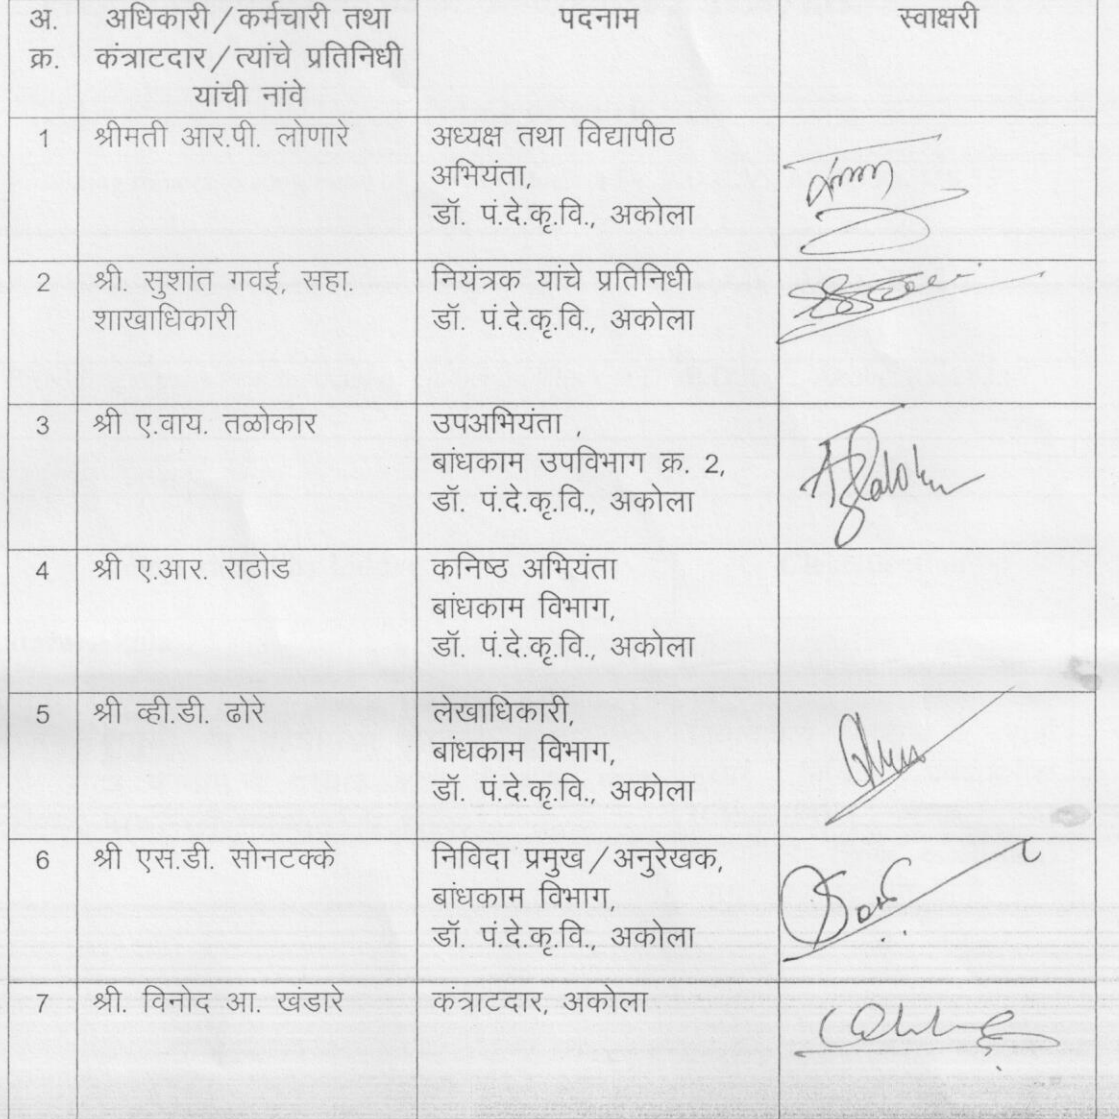 अ. अधिकारी/कर्मचारी तथा पदनाम स्वाक्षरी
क्र. कंत्राटदार/त्यांचे प्रतिनिधी
यांची नांवे
1 श्रीमती आर.पी. लोणारे अध्यक्ष तथा विद्यापीठ
अभियंता,
डॉ. पं.दे.कृ.वि., अकोला
2 श्री. सुशांत गवई, सहा. नियंत्रक यांचे प्रतिनिधी
शाखाधिकारी डॉ. पं.दे.कृ.वि., अकोला
3 श्री ए.वाय. तळोकार उपअभियंता ,
बांधकाम उपविभाग क्र. 2,
डॉ. पं.दे.कृ.वि., अकोला
4 श्री ए.आर. राठोड कनिष्ठ अभियंता
बांधकाम विभाग,
डॉ. पं.दे.कृ.वि., अकोला
5 श्री व्ही.डी. ढोरे लेखाधिकारी,
बांधकाम विभाग,
डॉ. पं.दे.कृ.वि., अकोला
6 श्री एस.डी. सोनटक्के निविदा प्रमुख/अनुरेखक,
बांधकाम विभाग,
डॉ. पं.दे.कृ.वि., अकोला
7 श्री. विनोद आ. खंडारे कंत्राटदार, अकोला